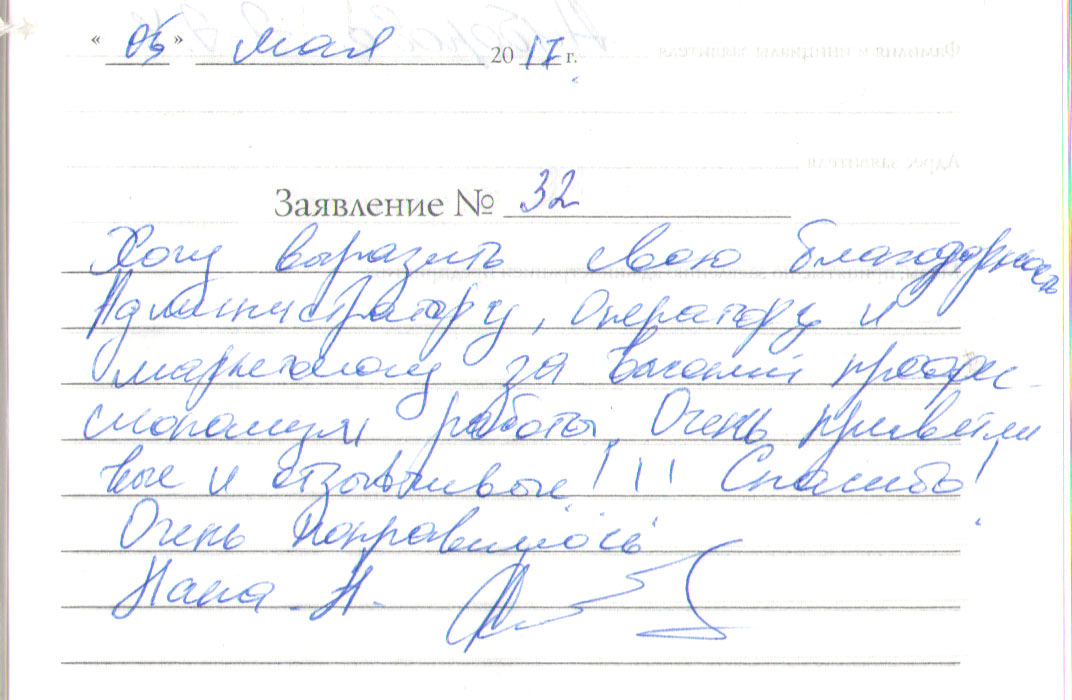 « 05 » мая 2017 г.
Заявление № 32
Хочу выразить свою благодарность
Администратору, оператору и
маркетологу за высокий профес-
сионализм работы. Очень приветли
вые и отзывчивые!!! Спасибо!
Очень понравилось
Нана. Н.